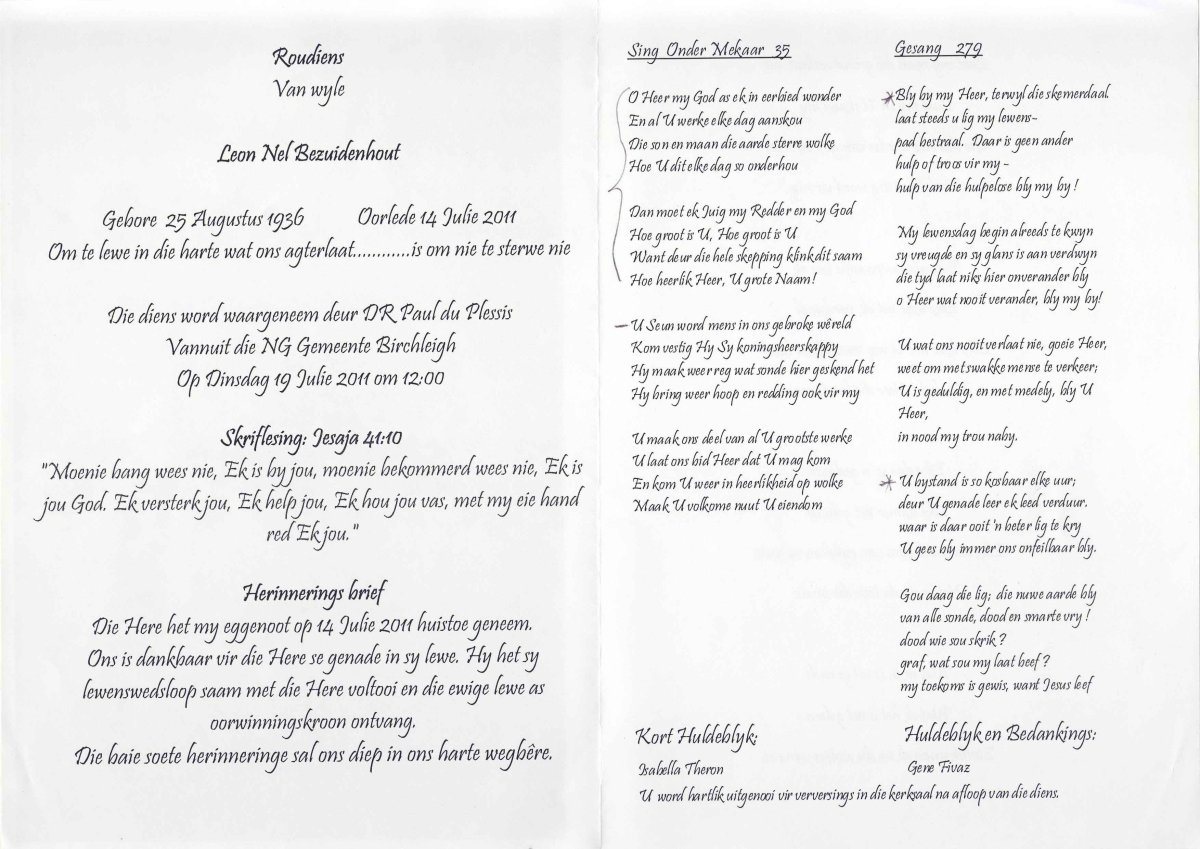 Roudiens
Van wyle
Leon Nel Bezuidenhout
Gebore 25 Augustus 1936 Oorlede 14 Julie 2011
Om te lewe in die harte wat ons agterlaat............is om nie te sterwe nie
Die diens word waargeneem deur DR Paul du Plessis
Vannuit die NG Gemeente Birchleigh
Op Dinsdag 19 Julie 2011 om 12:00
Skriflesing: Jesaja 41:10
"Moenie bang wees nie, Ek is by jou, moenie bekommerd wees nie, Ek is
jou God. Ek versterk jou, Ek help jou, Ek hou jou vas, met my eie hand
red Ek jou."
Herinnerings brief
Die Here het my eggenoot op 14 Julie 2011 huistoe geneem.
Ons is dankbaar vir die Here se genade in sy lewe. Hy het sy
lewenswedsloop saam met die Here voltooi en die ewige lewe as
oorwinningskroon ontvang.
Die baie soete herinneringe sal ons diep in ons harte wegbêre.
Sing Onder Mekaar 35
O Heer my God as ek in eerbied wonder
En al U werke elke dag aanskou
Die son en maan die aarde sterre wolke
Hoe U dit elke dag so onderhou
Dan moet ek Juig my Redder en my God
Hoe groot is U, Hoe groot is U
Want deur die hele skepping klink dit saam
Hoe heerlik Heer, U grote Naam!
U Seun word mens in ons gebroke wêreld
Kom vestig Hy Sy koningsheerskappy
Hy maak weer reg wat sonde hier geskend het
Hy bring weer hoop en redding ook vir my
U maak ons deel van al U grootste werke
U laat ons bid Heer dat U mag kom
En kom U weer in heerlikheid op wolke
Maak U volkome nuut U eiendom
Gesang 279
Bly by my Heer, terwyl die skemerdaal
laat steeds u lig my lewens-
pad bestraal. Daar is geen ander
hulp of troos vir my -
hulp van die hulpelose bly my by !
My lewensdag begin alreeds te kwyn
sy vreugde en sy glans is aan verdwyn
die tyd laat niks hier onverander bly
o Heer wat nooit verander, bly my by!
U wat ons nooit verlaat nie, goeie Heer,
weet om met swakke mense te verkeer;
U is geduldig, en met medely, bly U
Heer,
in nood my trou naby.
U bystand is so kosbaar elke uur;
deur U genade leer ek leed verduur.
waar is daar ooit 'n beter lig te kry
U gees bly immer ons onfeilbaar bly.
Gou daag die lig; die nuwe aarde bly
van alle sonde, dood en smarte vry !
dood wie sou skrik ?
graf, wat sou my laat beef ?
my toekoms is gewis, want Jesus leef
Kort Huldeblyk:
Isabella Theron
Huldeblyk en Bedankings:
Gene Fivaz
U word hartlik uitgenooi vir verversings in die kerksaal na afloop van die diens.